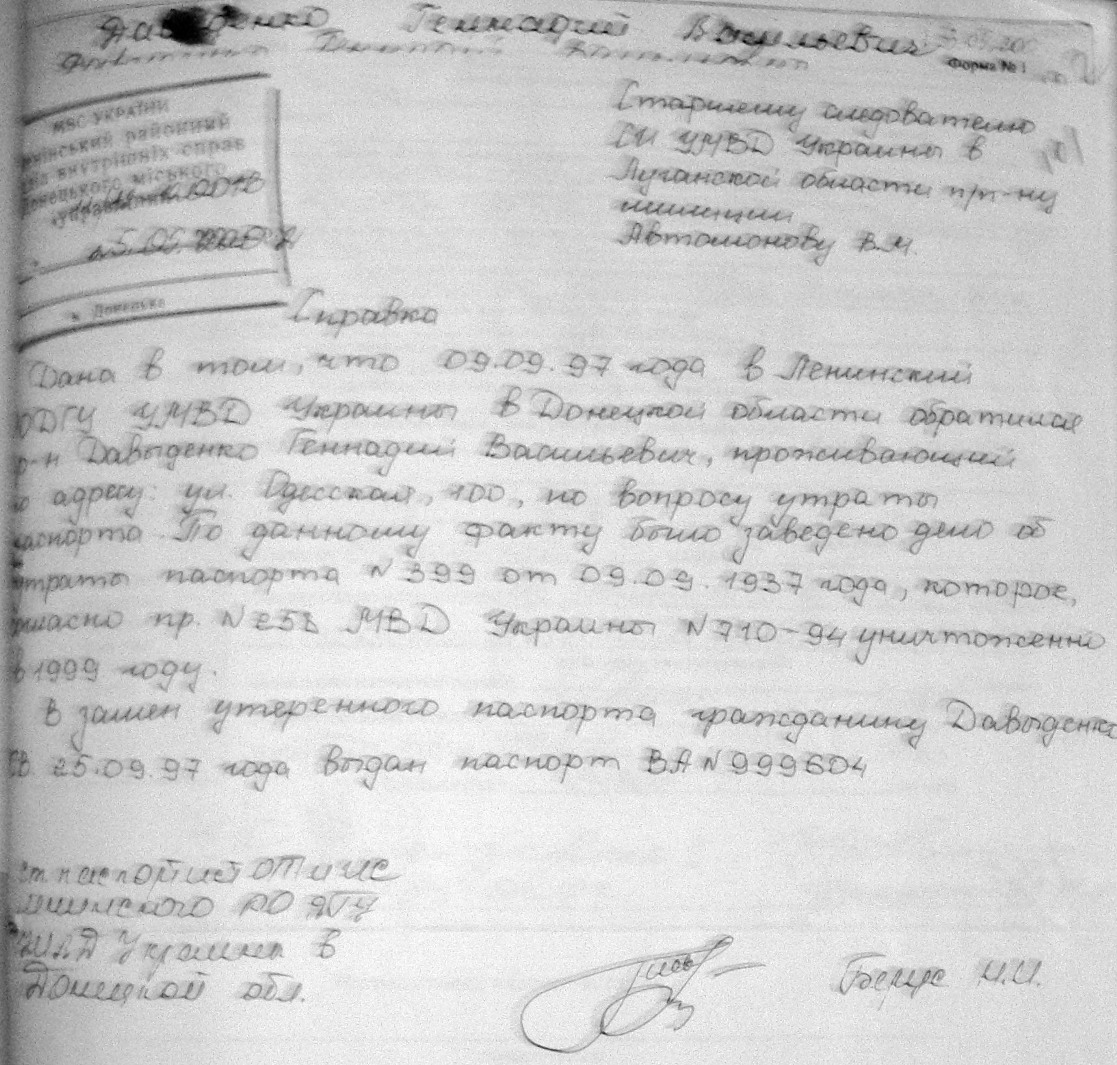 Геннадий Васильевич
Форма № 1
МВС УКРАЇНИ
районный
внутрішніх справ
Донецького міського
управління
м. Донецьк
Старшему следователю
СИ УМВД Украины в
Луганской области пп-ну
милиции
Автомонову В.М.
Справка
Дана в том, что 09.09.97 года в Ленинский
УМВД Украины в Донецкой области обратился
р-н Давыденко Геннадий Васильевич, проживающий
о адресу: ул. Одесская, 100, по вопросу утраты
аспорта. По данному факту было заведено дело об
утраты паспорта N 399 от 09.09.1937 года, которое,
гласно пр. N 258 МВД Украины N 710-94 уничтоженно
в 1999 году.
В замен утеренного паспорта гражданину Давыденко
25.09.97 года выдан паспорт ВА N 999604
ст паспортист
РО
Украины в
Донецкой обл.
Н.И.